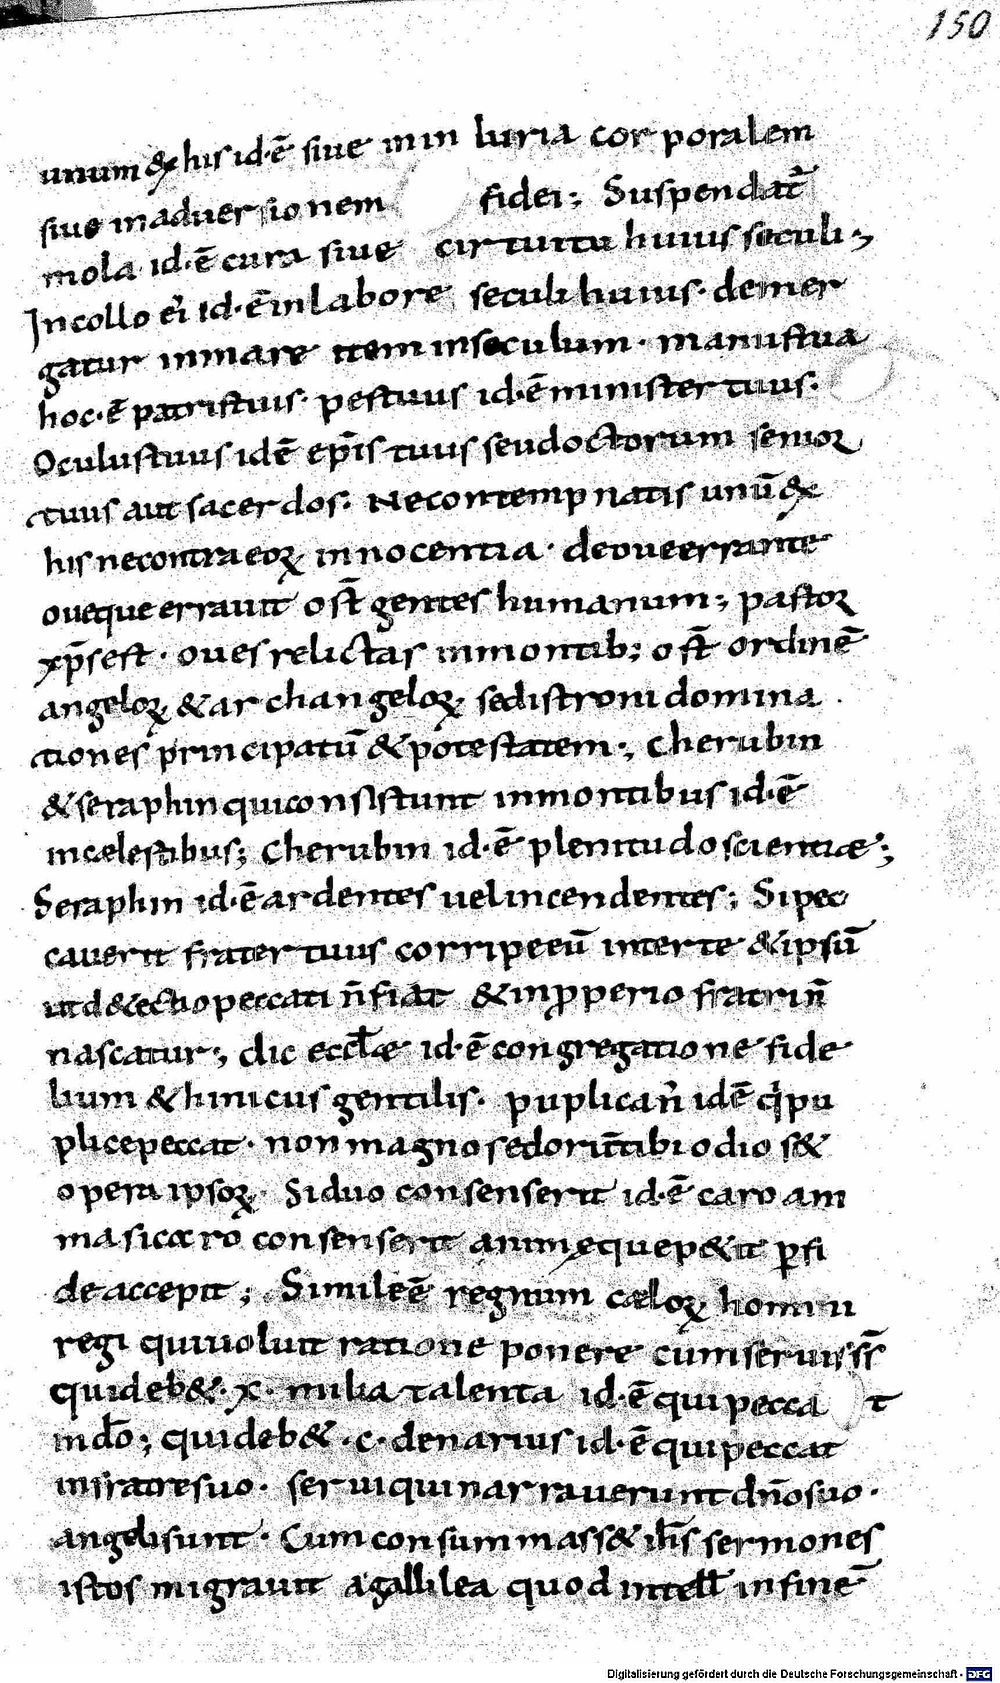 150
unum & his id·ē siue in in luria corporalem
siue in aduersionem fidei; Suspendat̄
mola id·ē cura siue cirtuitu huius seculi;
In collo ei' id·ē in labore seculi huius· demer
gatur in mare item in seculum· manus tua
hoc·ē patris tuus· pes tuus id·ē minister tuus·
Oculus tuus id ē ep̄is tuus seu doctorum senior
tuus aut sacerdos· Ne contempnatis unū ex
his ne contra eoꝝ innocentia· de oue errante
oue que errauit ost̄ gentes humanum; pastor
xp̄s est· oues relictas in montib; ost̄ ordinē
angeloꝝ & archangeloꝝ sedis troni domina
tiones principatū & potestatem; cherubin
& seraphin qui consistunt in montibus id·ē
in cælestibus; Cherubin id·ē plenitudo scientiæ;
Seraphin id·ē ardentes uel incendentes; Si pec
cauerit frater tuus corripe eū inter te & ipsū
ut d&ectio peccati n̄ fiat & inꝓperio fratri n̄
nascatur; dic eccl̄æ id·ē congregatione fide
lium & hinicus gentilis· puplican' id ē q̇ pu
plice peccat· non magno sed orienti tibi odio s&
opera ipsoꝝ· Si duo consenserit id·ē caro am
ma si caro consenserit animeque p&it ꝑ fi
de accepit; Simile ē regnum cæloꝝ homini
regi qui uoluit ratione ponere cum seruis s̄s̄
qui deb&·x· milia talenta id·ē qui pecca t
in do̅; qui deb&·c· denarius id·ē qui peccat
in fratre suo· serui qui narrauerunt dn̄o suo·
angeli sunt· Cum consummass& ih̄s sermones
istos migrauit a gallilea quod intell̄ in finē
Digitalisierung gefördert durch die Deutsche Forschungsgemeinschaft - DFG